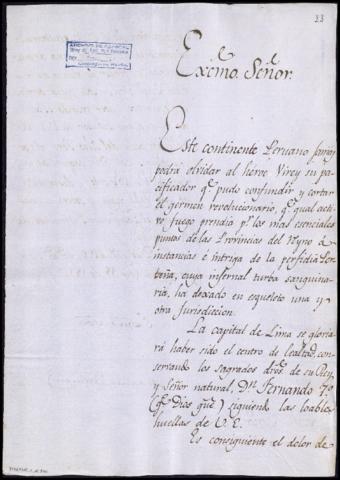 33
Exc̃mo. Señor.
Este continente Peruano jamas
podrá olvidar al heroe Virey su pa-
cificador qᵉ pudo confundir, y cortar
el germen revolucionario, qᵉ qual acti-
vo fuego prendia pʳ los mas esenciales
puntos de las Provincias del Reyno á
instancias é intriga de la perfidia Por-
teña, cuya infernal turba sanguina-
ria, ha dexado en esqueleto una y
otra Jurisdicion.
La capital de Lima se gloria-
rá haber sido el centro de lealtad, con-
servando los sagrados dros. de su Rey,
y Señor natural, Dⁿ Fernando 7º
(qᵉ Dios gᵘᵉ) siguiendo las loables
huellas de V. E.
Es consiguiente el dolor de